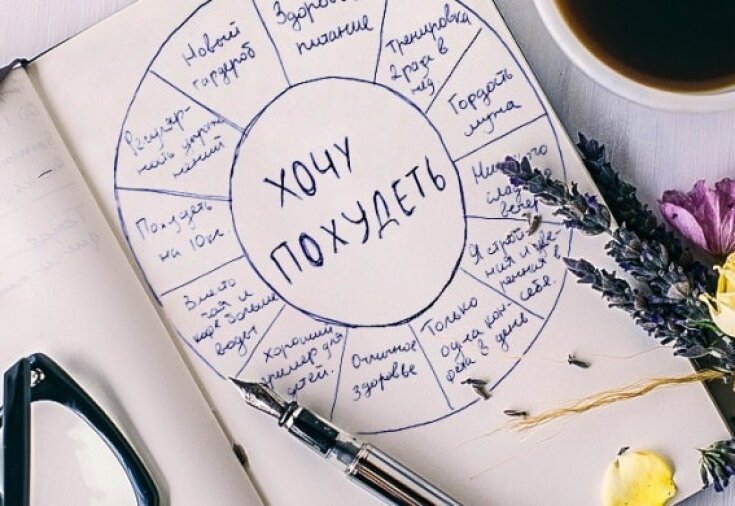 ХОЧУ
ПОХУДЕТЬ
Здоровое
питание
Тренировка
2 раза в
нед.
Гордость
мужа
Никакого
вечер
Я строй-
ная и уве-
ренная в
себе.
Только
одна кон-
фета в день
Отличное
здоровье
Хороший
пример для
детей.
Вместо
чая и
кофе больше
воды
Похудеть
на 10кг.
Регуляр-
ность упраж-
нений
Новый
гардероб